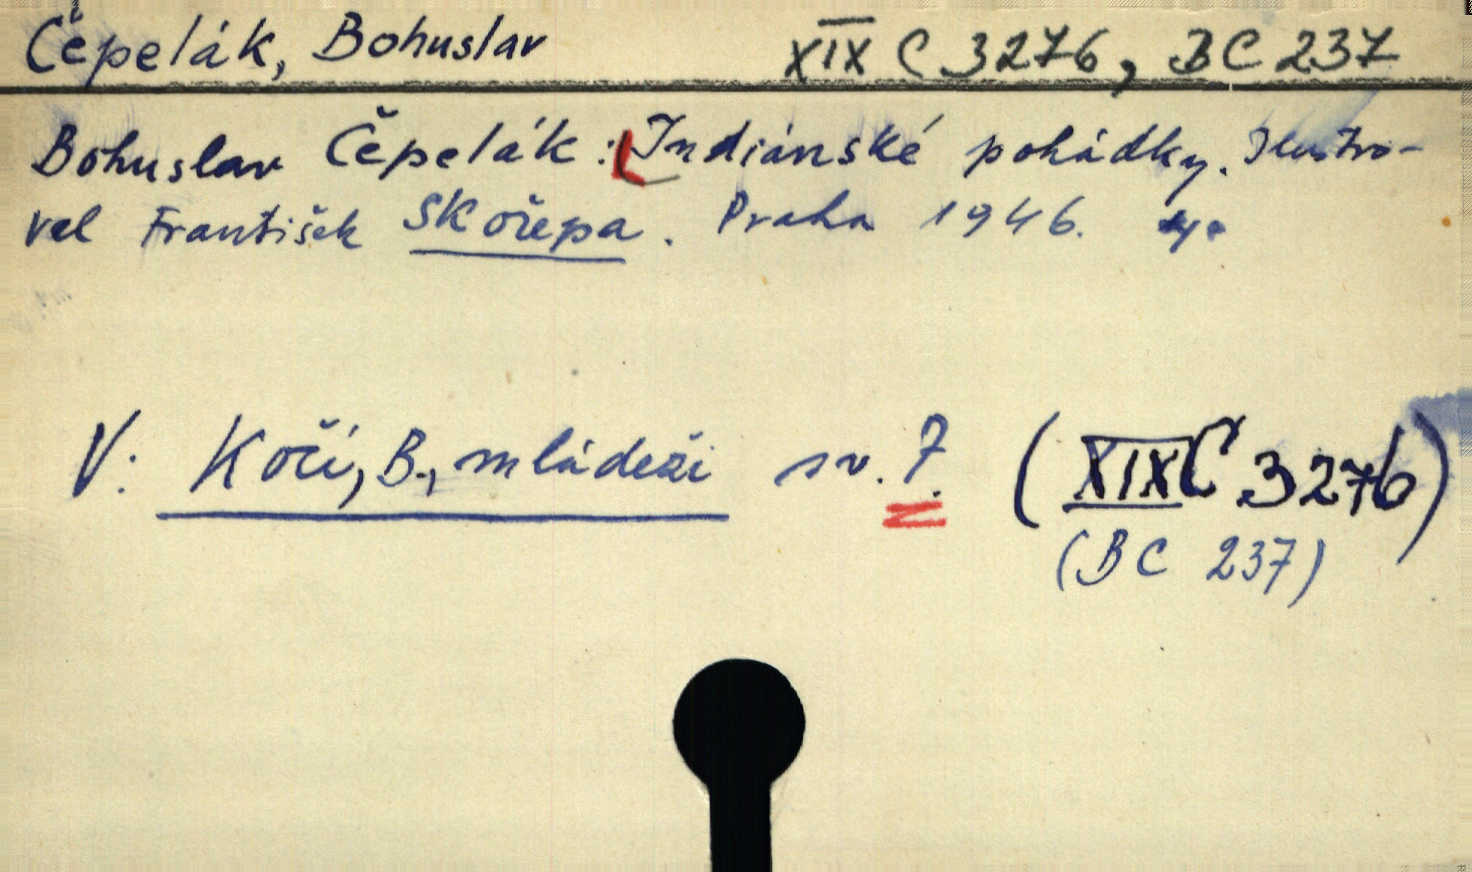 Čepelák, Bohuslav XIX C 3276, BC 237
Bohuslav Čepelák: Indiánské pohádky. Ilustro-
val František Skořepa. Praha 1946. 4°
V: Kočí, B., mládeži sv. 7. (XIX C 3276)
(BC 237)